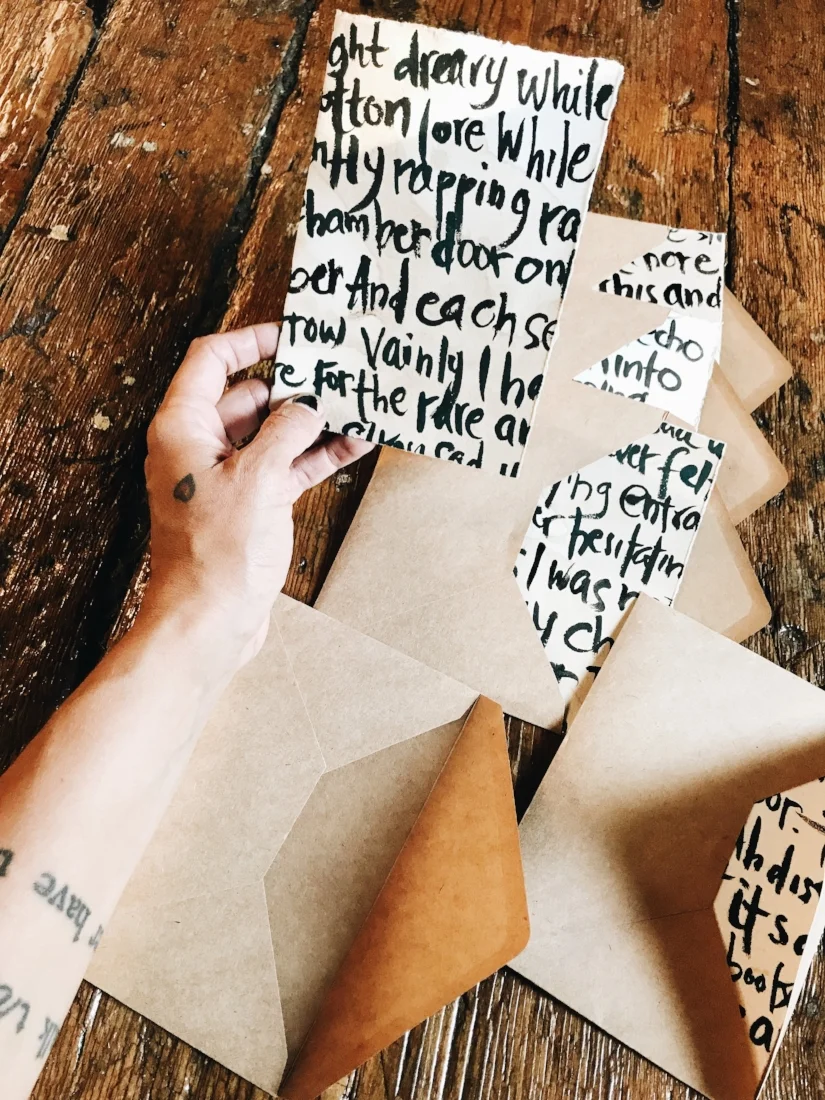 ght dreary while
otton lore While
ntly napping ra
hamber door on
ber And each se
row Vainly I ha
e For the rare an
sad
more
this and
echo
into
ver fel
ing entra
hesitatin
I was
y ch
or.
dis
it so
books
a
have